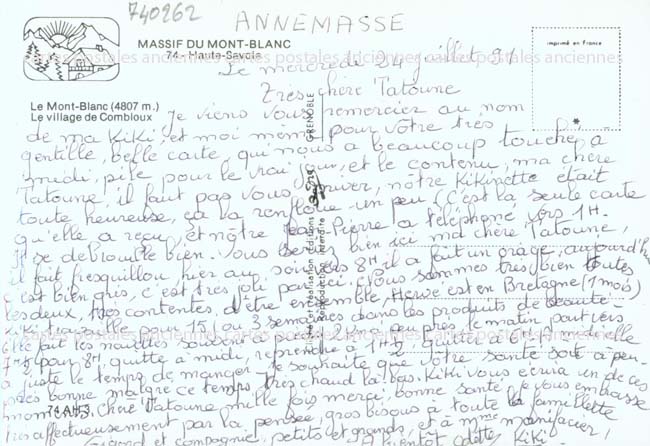 740262
ANNEMASSE
MASSIF DU MONT-BLANC
74 - Haute-Savoie
imprimé en France
Le mercredi 24 juillet 91
Très chère Tatoune
Le Mont-Blanc (4807 m.)
Le village de Combloux
Je viens vous remercier au nom
de ma Kiki, et moi même pour votre très
gentille, belle carte, qui nous a beaucoup touché, à
midi, pile pour le vrai jour, et le contenu, ma chère
Tatoune, il faut pas vous priver, nôtre Kikinette était
toute heureuse, ça la renfloue un peu (c'est la seule carte
qu'elle a reçu, et nôtre Jean Pierre a téléphoné vers 1H.
il se débrouille bien. Vous bien ici ma chère Tatoune,
il fait hier au soir vers 8H il a fait un orage, aujourd'hui
c'est bien gris, c'est très joli par ici. Nous sommes très bien toutes
les deux, très contentes d'être ensemble, Hervé est en Bretagne (1 mois)
Kiki travaille pour 15 j ou 3 semaines dans les produits de beauté
elle fait les nouilles souvent à 2 Km à peu près, le matin part vers
7H½ pour 8H quitte à midi, reprend à 1H½, quitte à 6H. A midi elle
a juste le temps de manger. Je souhaite que votre santé soit à peu
près bonne malgré ce temps très chaud là-bas. Kiki vous écrira un de ces
moments, chère Tatoune mille fois merci, bonne santé, je vous embrasse
très affectueusement par la pensée, gros bisous à toute la famillette
et compagnie, petits et grands, et à Mme
A bientôt Odette Kiki
74 AH3
GRENOBLE